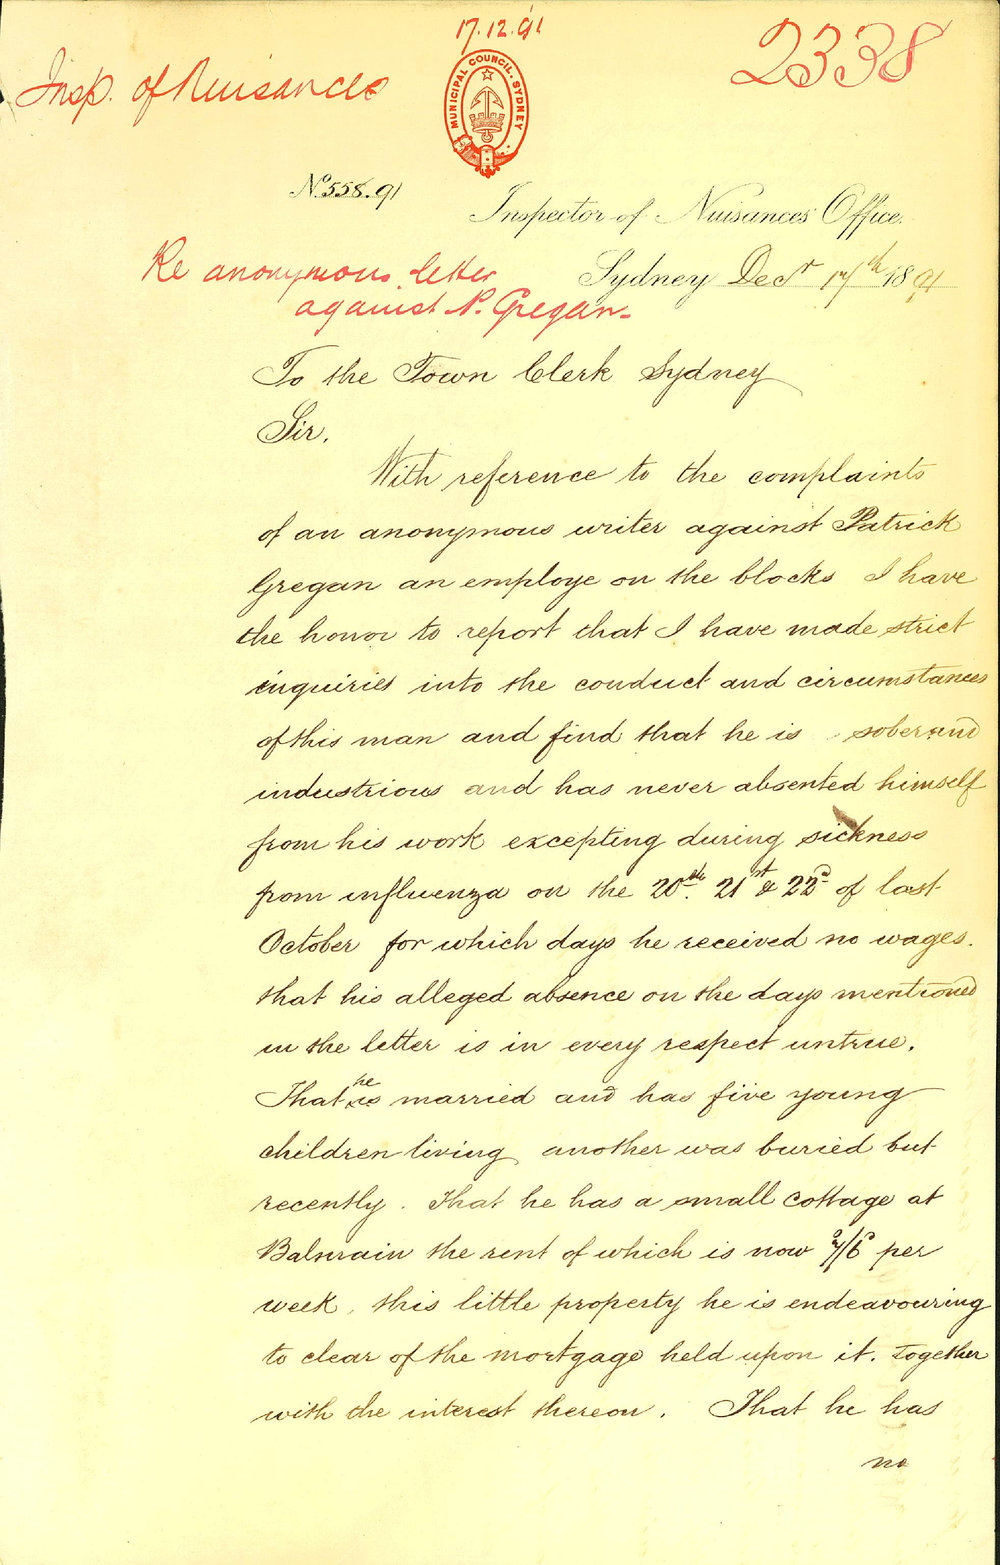 17.12.91
2338
Insp. of Nuisances
MUNICIPAL COUNCIL. SYDNEY
No 558.91
Inspector of Nuisances Office.
Re anonymous letter
Sydney Decr 17th 1891
against P. Gregan.
To the Town Clerk Sydney
Sir.
With reference to the complaints
of an anonymous writer against Patrick
Gregan an employe on the blocks I have
the honor to report that I have made strict
inquiries into the conduct and circumstances
of this man and find that he is sober and
industrious and has never absented himself
from his work excepting during sickness
from influenza on the 20th. 21st & 22d of last
October for which days he received no wages.
that his alleged absence on the days mentioned
in the letter is in every respect untrue.
That he is married and has five young
children living another was buried but
recently. That he has a small cottage at
Balmain the rent of which is now 7/6 per
week, this little property he is endeavouring
to clear of the mortgage held upon it. together
with the interest thereon. That he has
no